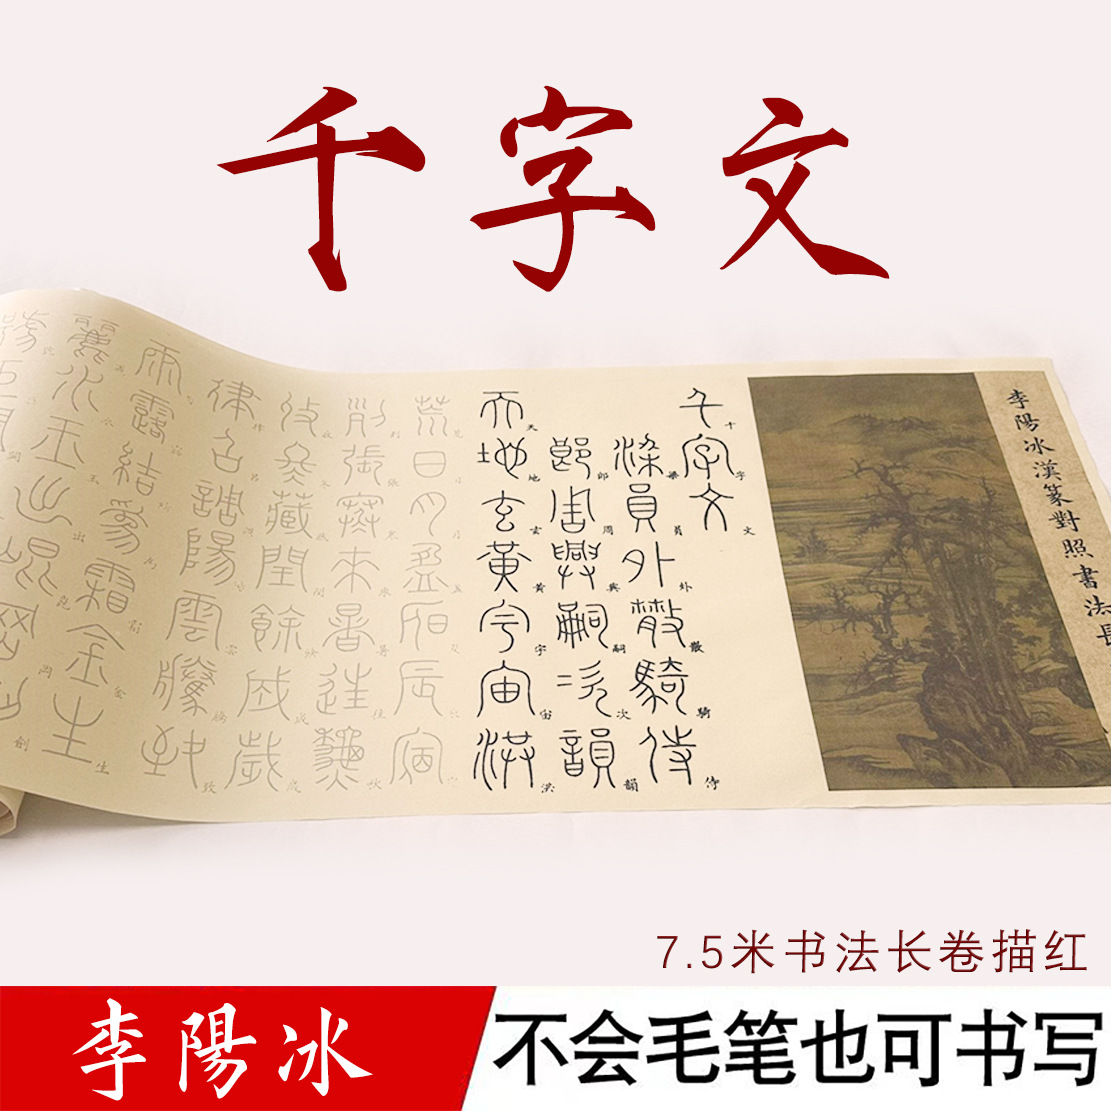 千字文
李陽冰漢篆對照書法長
千字文
梁員外散騎侍
郎周興嗣次韻
天地玄黃宇宙洪
荒日月盈昃辰宿
列張寒來暑往秋
收冬藏閏餘成歲
律召調陽雲騰致
雨露結為霜金生
麗水玉出崑岡劍
7.5米书法长卷描红
李陽冰
不会毛笔也可书写